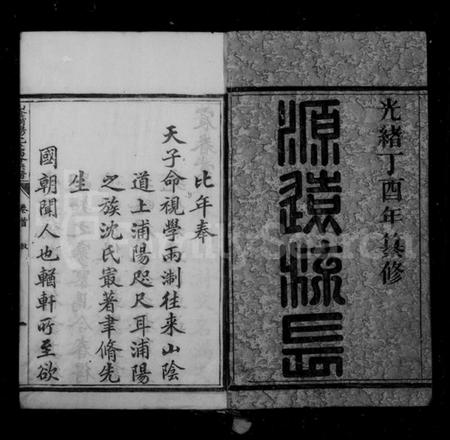 光緒丁酉年蒸修
源遠流長
比年奉
天子命視學兩淛往來山陰
道上浦陽咫尺耳浦陽
之族沈氏㝡著聿脩先
生
國朝聞人也輶軒所至欲